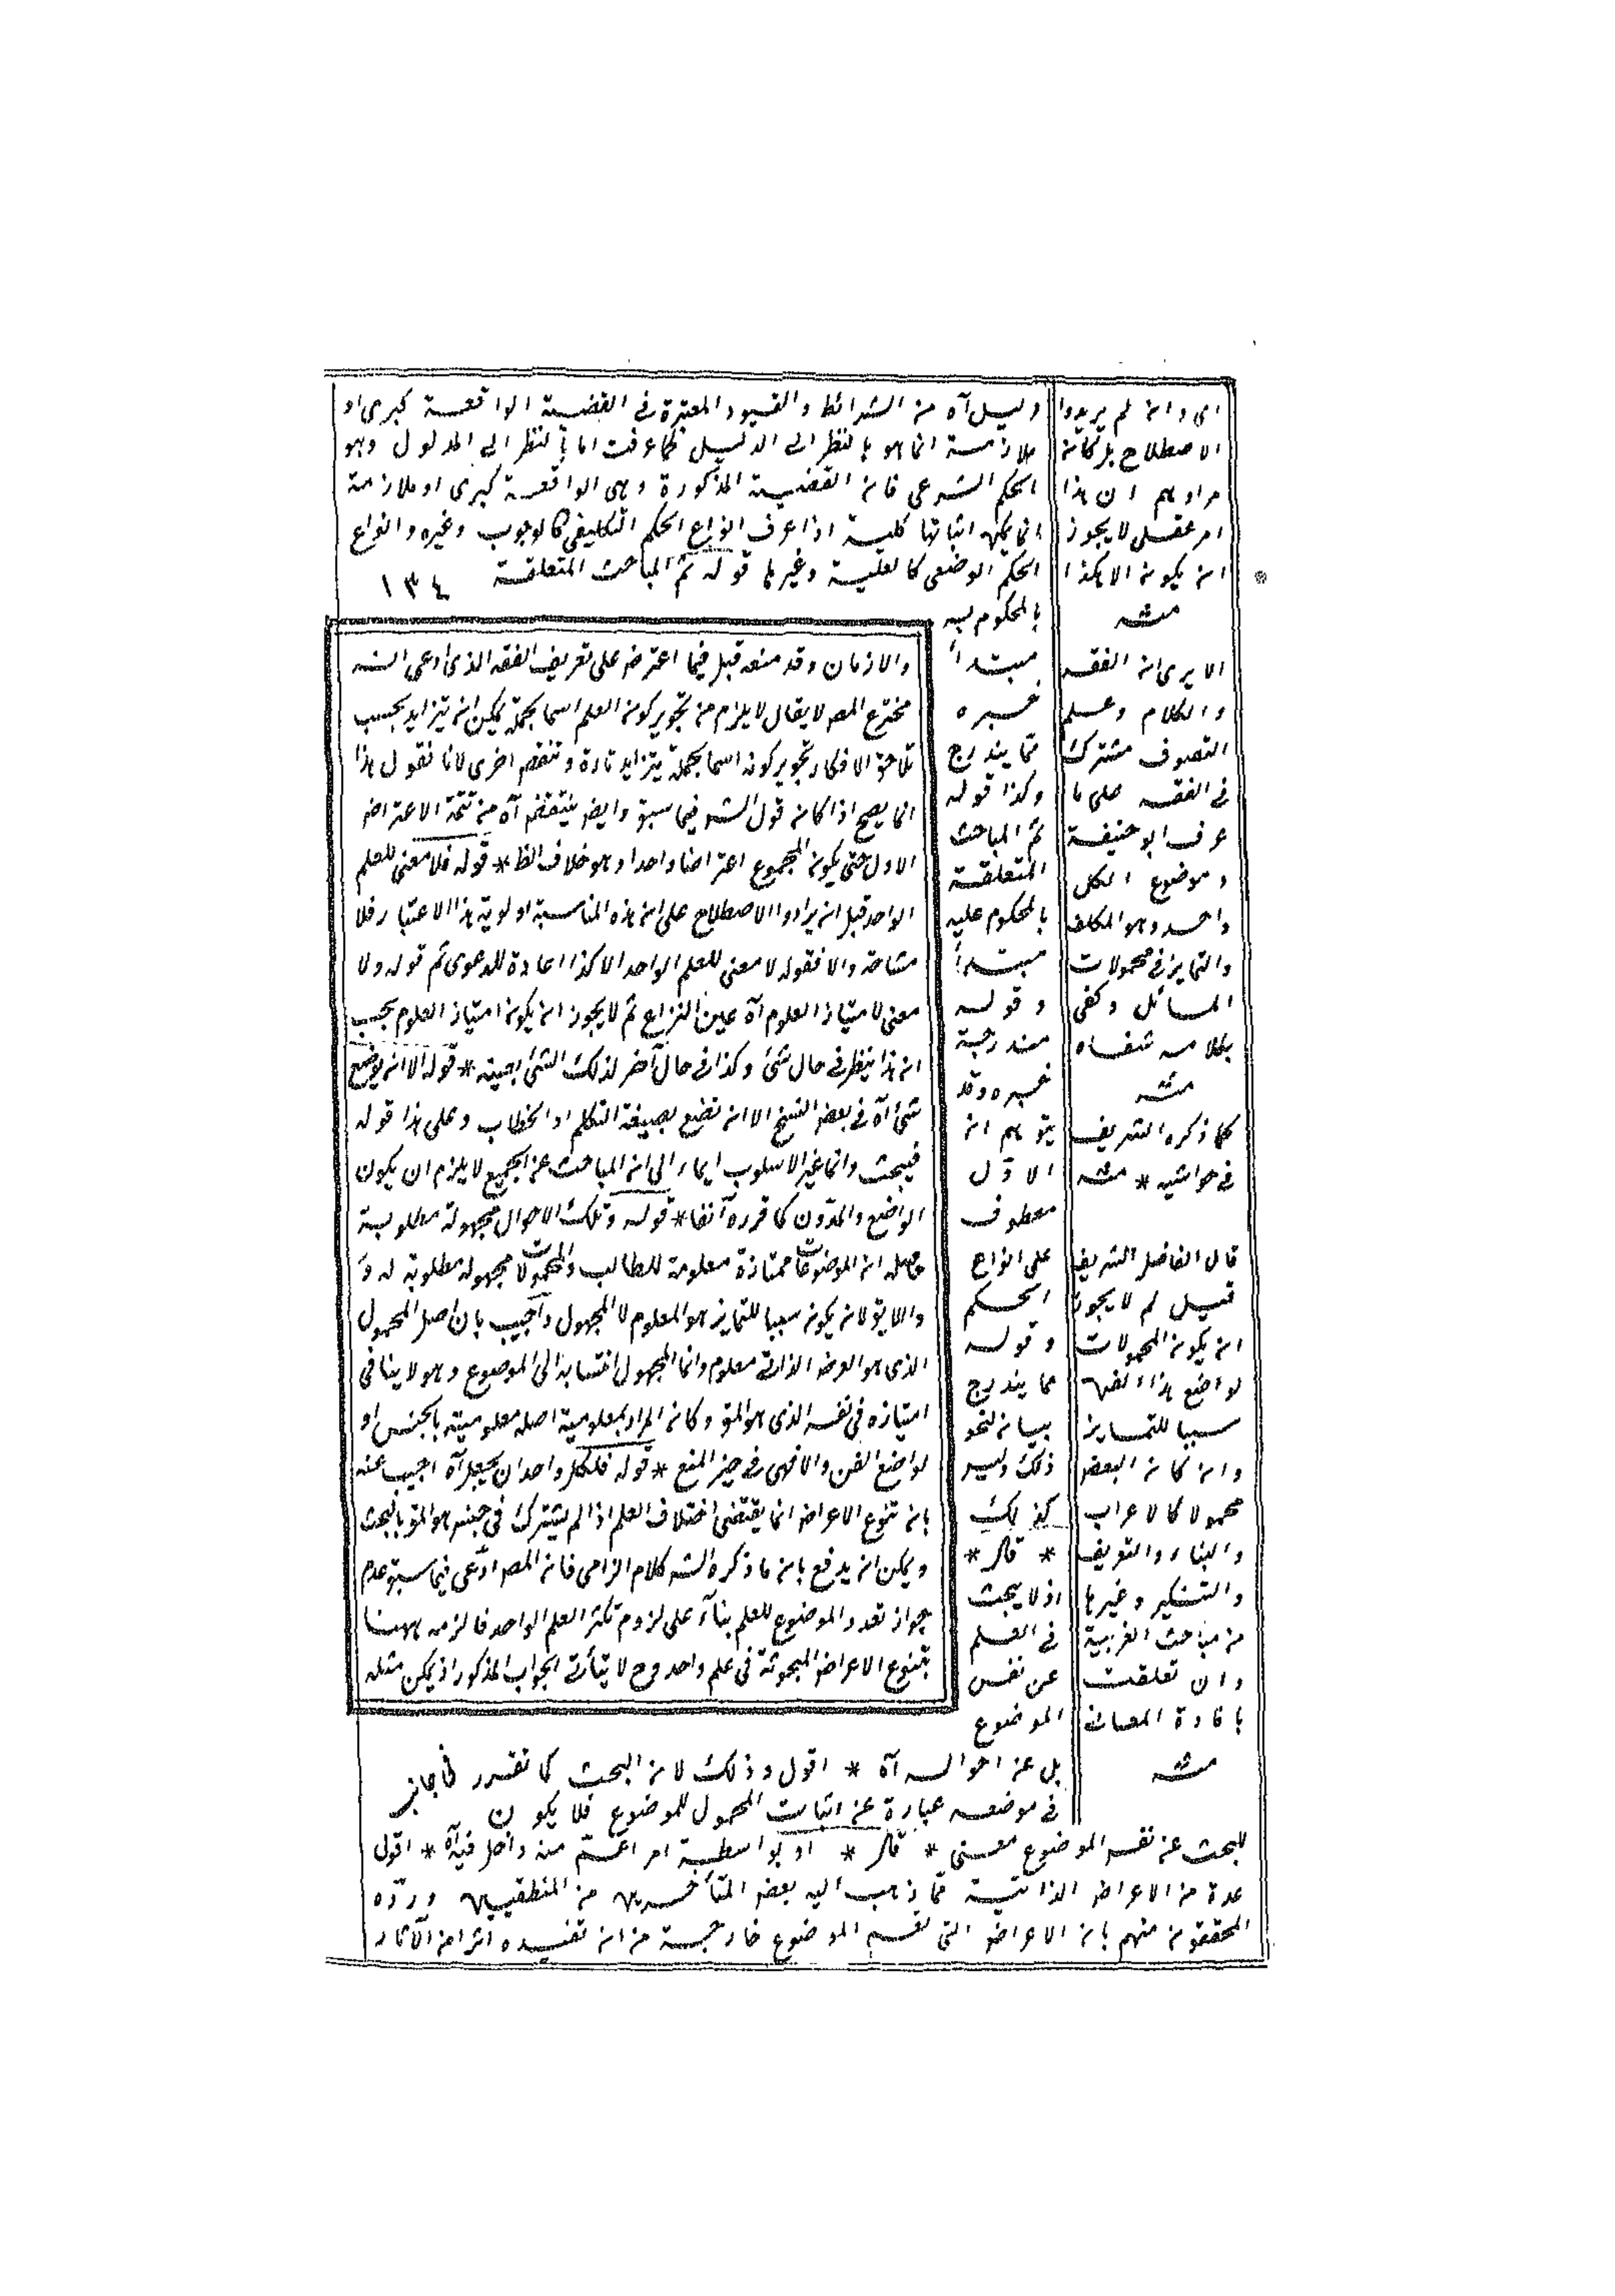 دليل آه من الشرائط والقيود المعتبرة في القضية الواقعة كبرى او
ملازمة انما هو بالنظر الى الدليل كما عرفت اما بالنظر الى المدلول وهو
الحكم الشرعى فان القضية المذكورة وهى الواقعة كبرى او ملازمة
انما يمكن اثباتها كلية اذا عرف انواع الحكم التكليفى كالوجوب وغيره وانواع
الحكم الوضعى كالعلية وغيرها قوله ثم المباحث المتعلقة
١٣٤
بالمحكوم به
مبتدأ
خبره
مما يندرج
وكذا قوله
ثم المباحث
المتعلقة
بالمحكوم عليه
مبتدأ
وقوله
مندرجة
خبره وقد
يتوهم ان
الاول
معطوف
على انواع
الحكم
وقوله
مما يندرج
بيان لنحو
ذلك وليس
كذلك
* قال *
اذ لا يبحث
في العلم
عن نفس
الموضوع
بل عن احواله آه * اقول وذلك لان البحث كما تقرر
في موضعه عبارة عن اثبات المحمول للموضوع فلا يكون
للبحث عن نفس الموضوع معنى * قال * او بواسطة امر اعم منه داخل فيه آه * اقول
عدة من الاعراض الذاتية مما ذهب اليه بعض المتأخرين من المنطقيين ورده
المحققون منهم بان الاعراض التى تعم الموضوع خارجة من ان تفيده اثرا من الآثار
والازمان وقد منعه قبل فيما اعترض على تعريف الفقه الذى ادعى انه
مخترع المصـ لا يقال لا يلزم من تجويز كون العلم اسما بجملة يمكن ان تتزايد بحسب
تلاحق الافكار تجويز كونه اسما بجملة يتزايد تارة وتنقص اخرى لانا نقول هذا
انما يصح اذا كان قول الشـ فيما سبق وايضـ ينتقض آه من تتمة الاعتراض
الاول حتى يكون المجموع اعتراضا واحدا وهو خلاف الظ * قوله فلا معنى للعلم
الواحد قيل ان يرادوا الاصطلاح على ان هذه المناسبة اولوية هذا الاعتبار فلا
مشاحة والا فقوله لا معنى للعلم الواحد الا كذا اعادة للدعوى ثم قوله ولا
معنى لامتياز العلوم آه عين النزاع ثم لا يجوز ان يكون امتياز العلوم بحسب
ان هذا ينظر في حال شئ وكذا في حال آخر لذلك الشئ بعينه * قوله الا ان يوضع
شئ آه في بعض النسخ الا ان تضع بصيغة التكلم او الخطاب وعلى هذا قوله
فيبحث وانما غير الاسلوب ايماء الى ان المباحث عن الجميع لا يلزم ان يكون
الواضع والمدون كما قرره آنفا * قوله وتلك الاحوال مجهولة مطلوبة
حاصله ان الموضوعات ممتازة معلومة للطالب والمحمولات مجهولة مطلوبة له و
واللايق لان يكون سببا للتمايز هو المعلوم لا المجهول واجيب بان اصل المحمول
الذى هو العرض الذاتى معلوم وانما المجهول انتسابه الى الموضوع وهو لا ينافى
امتيازه في نفسه الذى هو المقـ وكان المراد بمعلومية اصله معلوميته بالجنس او
لواضع الفن والا فهى في حيز المنع * قوله فلكل واحد ان يجعل آه اجيب عنه
بان تنوع الاعراض انما يقتضى اختلاف العلم اذا لم يشترك في جنس هو المقـ بالبحث
ويمكن ان يدفع بان ما ذكره الشـ كلام الزامى فان المصـ ادعى فيما سبق عدم
جواز تعدد الموضوع للعلم بناء على لزوم تكثر العلم الواحد فالزمه ههنا
بتنوع الاعراض المبحوثة في علم واحد وح لا يتأتى الجواب المذكور اذ يمكن مثله
اى وان لم يريدوا
الاصطلاح بل كان
مرادهم ان هذا
امر عقلى لا يجوز
ان يكون الا هكذا
منه
الا يرى ان الفقه
والكلام وعلم
التصوف مشترك
في الفقه على ما
عرف ابو حنيفة
وموضوع الكل
واحد وهو المكلف
والتمايز في محمولات
المسائل وكفى
بكلامه شفاه
منه
كما ذكره الشريف
في حواشيه * منه
قال الفاضل الشريف
قيل لم لا يجوز
ان يكون المحمولات
لواضع هذا الفن
سببا للتمايز
وان كان البعض
محمولا كالاعراب
والبناء والتعريف
والتنكير وغيرها
من مباحث العربية
وان تعلقت
بافادة المعانى
منه